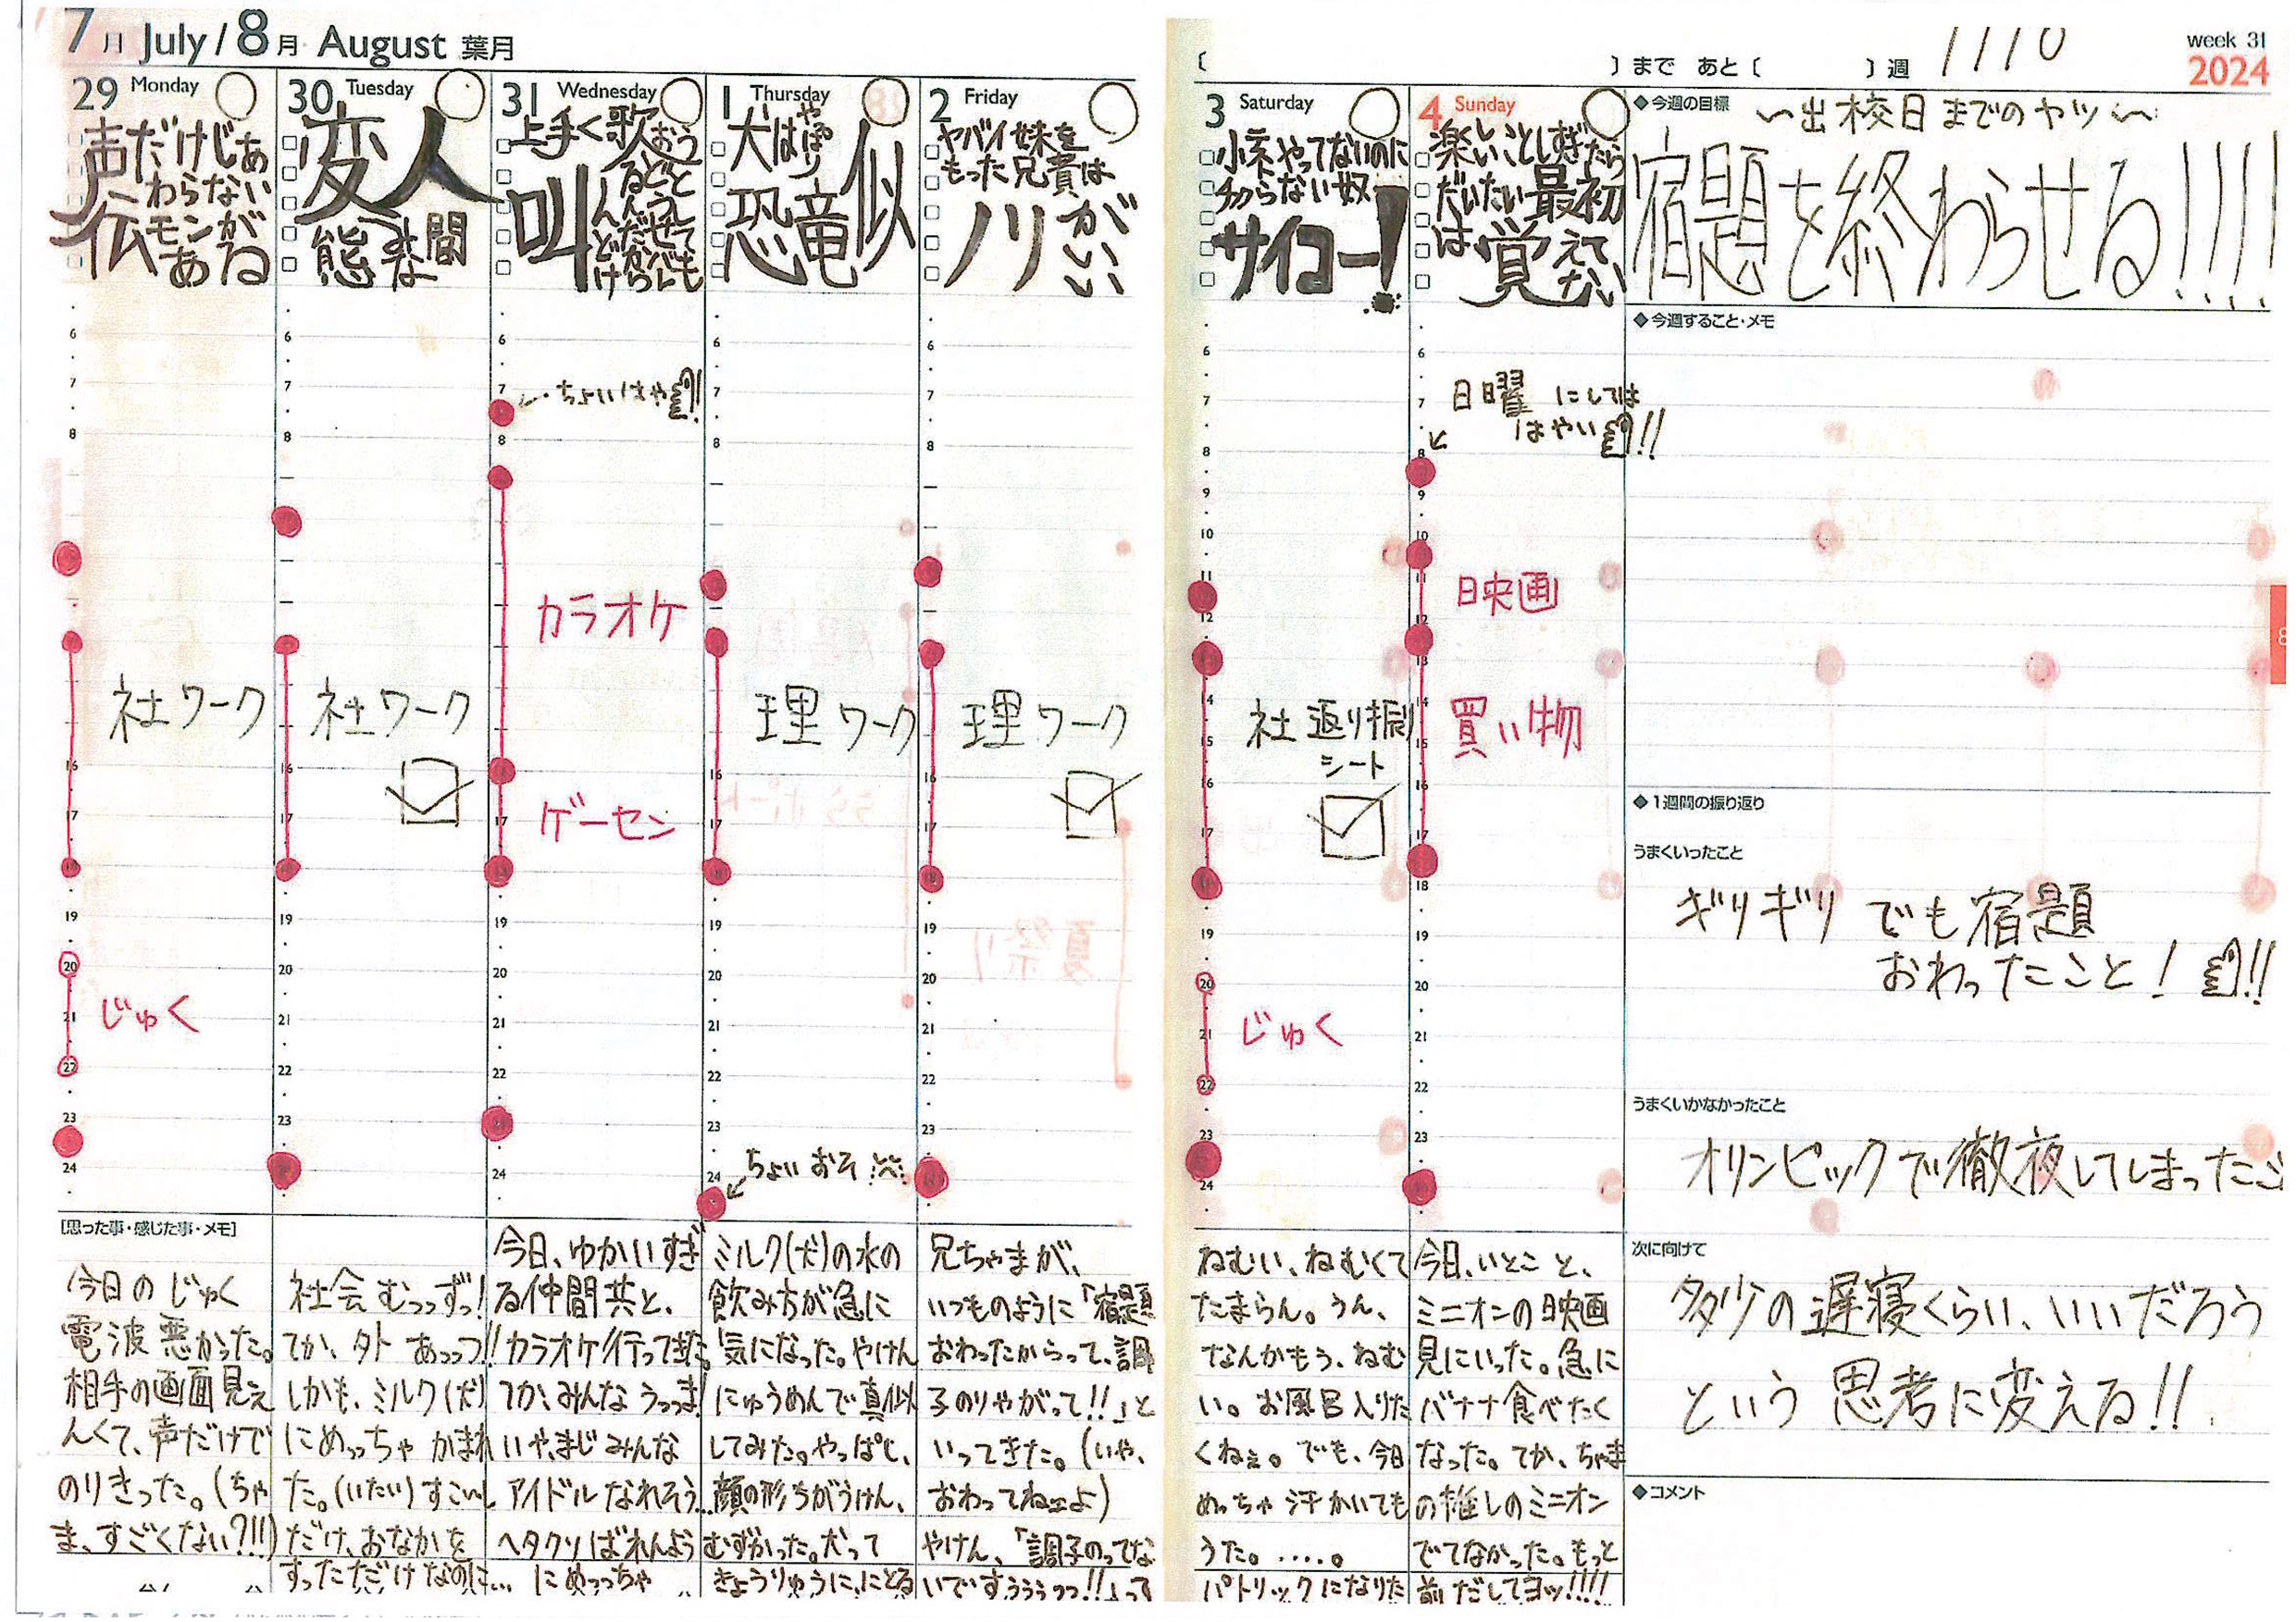 7月 July / 8月 August 葉月
29 Monday
声だけじゃ
わらない
伝モンが
ある
30 Tuesday
変人
態な間
31 Wednesday
上手く歌おう
叫
1 Thursday
犬はやっぱり
恐竜似
2 Friday
ヤバイ妹を
もった兄貴は
ノリがいい
3 Saturday
小ネやってないのに
チカらない奴
サイコー!
4 Sunday
楽しいことしすぎたら
だいたい最初
は覚えて
ない
〔 〕まで あと〔 〕週
week 31
2024
◆今週の目標
〜出校日までのヤツ〜
宿題を終わらせる!!!!
◆今週すること・メモ
ちょいはや
日曜 にしては
はやい!!
カラオケ
映画
社ワーク
社ワーク
理ワーク
理ワーク
社 返り振り
シート
買い物
ゲーセン
じゅく
じゅく
ちょいおそ
◆1週間の振り返り
うまくいったこと
ギリギリ でも宿題
おわったこと! !!
うまくいかなかったこと
オリンピックで徹夜してしまったこ
次に向けて
多少の遅寝くらい、いいだろう
という 思考に変える!!
◆コメント
[思った事・感じた事・メモ]
今日のじゅく
電波悪かった。
相手の画面見え
んくて、声だけで
のりきった。(ちゃ
ま、すごくない?!!)
社会むっっずっ!
てか、外 あっっつ!!
しかも、ミルク(犬)
にめっちゃ かまれ
た。(いたい)すこーし
だけ、おなかを
すっただけなのに...
今日、ゆかいすぎ
る仲間共と、
カラオケ行ってきた。
てか、みんなうっっま!
いや、まじみんな
アイドルなれそう...
ヘタクソばれんよう
にめっっちゃ
ミルク(犬)の水の
飲み方が急に
気になった。やけん
にゅうめんで真似
してみた。やっぱし、
顔の形ちがうけん、
むずかった。犬って
きょうりゅうに、にとる
兄ちゃまが、
いつものように「宿題
おわったからって、調
子のりやがって!!」と
いってきた。(いや、
おわってねェよ)
やけん、「調子のってな
いですぅぅぅっっ!!」って
ねむい、ねむくて
たまらん。うん、
なんかもう、ねむ
い。お風呂入りた
くねぇ。でも、今日
めっちゃ汗かいても
うた。.....。
パトリックになりた
今日、いとこと、
ミニオンの映画
見にいった。急に
バナナ食べたく
なった。てか、ちゃま
の推しのミニオン
でてなかった。もっと
前だしてヨッ!!!!